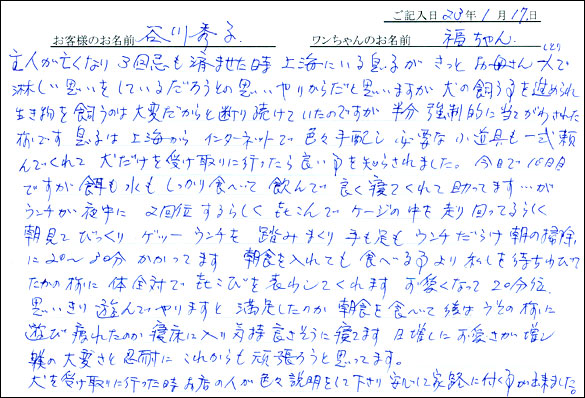 ご記入日 23年1月17日
お客様のお名前 谷川秀子 ワンちゃんのお名前 福ちゃん
主人が亡くなり 3回忌も済ませた時 上海にいる息子が きっとお母さん一人で
淋しい思いをしているだろうとの思いやりからだと思いますが 犬の飼う事を進められ
生き物を飼うのは大変だからと断り続けていたのですが 半分強制的に当てがわされた
様です 息子は上海から インターネットで色々手配し 必要な小道具も一式頼
んでくれて 犬だけを受け取りに行ったら良い事を知らされました。今日で16日目
ですが 餌も水もしっかり食べて 飲んで 良く寝てくれて助かってます…が
ウンチが夜中に 2回位するらしく よろこんでケージの中を走り回ってるらしく
朝見てびっくり ゲッー ウンチを踏みまくり 手も足もウンチだらけ 朝の掃除
に20〜30分かかってます 朝食を入れても食べる事より私しを待ちわびて
たかの様に 体全対でよろこびを表わしてくれます 可愛くなって20分位
思いきり遊んでやりますと 満足したのか 朝食を食べて 後はうその様に
遊び疲れたのか 寝床に入り気持良さそうに寝てます 日増しに可愛さが増し
躾の大変さと忍耐に これからも頑張ろうと思ってます。
犬を受け取りに行った時お店の人が色々説明をして下さり 安心して家路に付く事が出来ました。